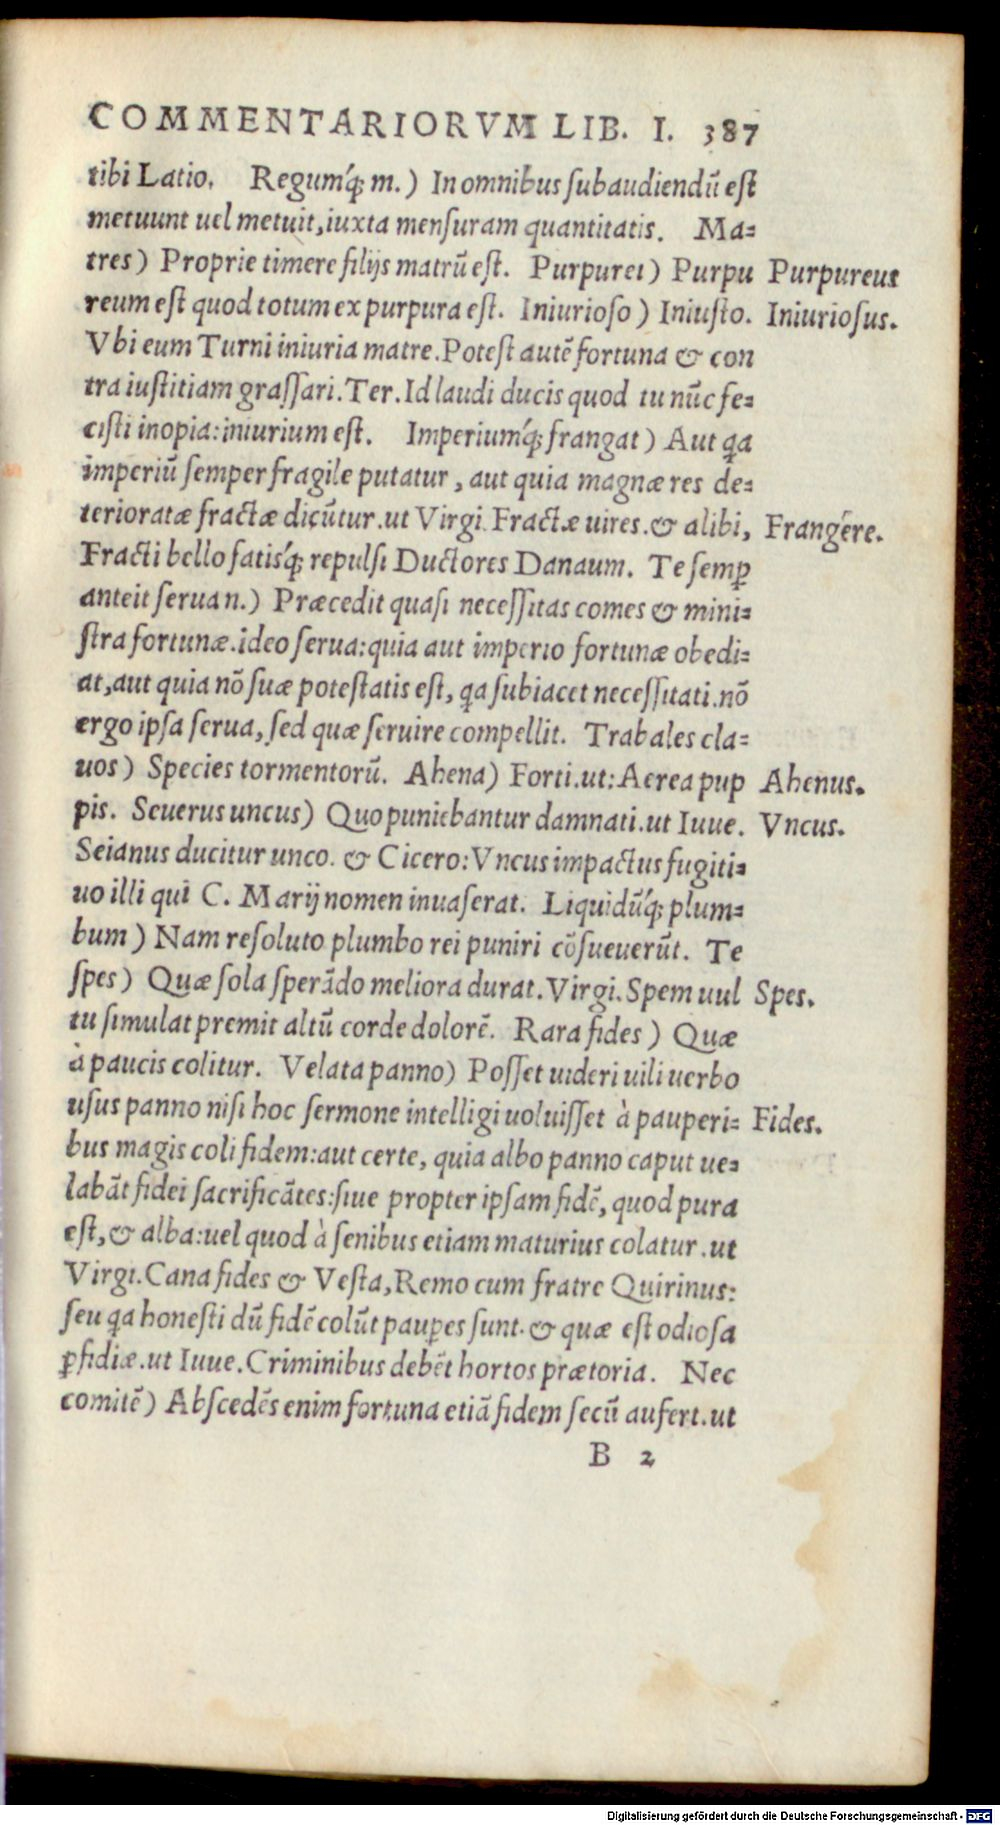 COMMENTARIORVM LIB. I. 387
tibi Latio. Regumq́; m.) In omnibus subaudiendū est
metuunt uel metuit, iuxta mensuram quantitatis. Ma=
tres) Proprie timere filijs matrū est. Purpurei) Purpu Purpureus
reum est quod totum ex purpura est. Iniurioso) Iniusto. Iniuriosus.
Vbi eum Turni iniuria matre. Potest autē fortuna & con
tra iustitiam grassari. Ter. Id laudi ducis quod tu nūc fe=
cisti inopia: iniurium est. Imperiumq́; frangat) Aut qa
imperiū semper fragile putatur, aut quia magnæ res de=
terioratæ fractæ dicūtur. ut Virgi. Fractæ uires. & alibi, Frangere.
Fracti bello fatisq́; repulsi Ductores Danaum. Te semꝑ
anteit serua n.) Præcedit quasi necessitas comes & mini=
stra fortunæ. ideo serua: quia aut imperio fortunæ obedi=
at, aut quia nō suæ potestatis est, qa subiacet necessitati. nō
ergo ipsa serua, sed quæ seruire compellit. Trabales cla=
uos) Species tormentorū. Ahena) Forti. ut: Aerea pup Ahenus.
pis. Seuerus uncus) Quo puniebantur damnati. ut Iuue. Vncus.
Seianus ducitur unco. & Cicero: Vncus impactus fugiti=
uo illi qui C. Marij nomen inuaserat. Liquidūq́; plum=
bum) Nam resoluto plumbo rei puniri cōsueuerūt. Te
spes) Quæ sola sperādo meliora durat. Virgi. Spem uul Spes.
tu simulat premit altū corde dolorē. Rara fides) Quæ
à paucis colitur. Velata panno) Posset uideri uili uerbo
usus panno nisi hoc sermone intelligi uoluisset à pauperi= Fides.
bus magis coli fidem: aut certe, quia albo panno caput ue=
labāt fidei sacrificātes: siue propter ipsam fidē, quod pura
est, & alba: uel quod à senibus etiam maturius colatur. ut
Virgi. Cana fides & Vesta, Remo cum fratre Quirinus:
seu qa honesti dū fidē colūt pauꝑes sunt. & quæ est odiosa
ꝑfidiæ. ut Iuue. Criminibus debēt hortos prætoria. Nec
comitē) Abscedēs enim fortuna etiā fidem secū aufert. ut
B 2
Digitalisierung gefördert durch die Deutsche Forschungsgemeinschaft - DFG